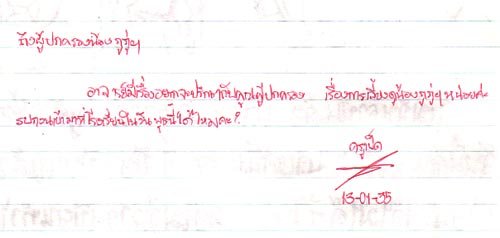 ถึงผู้ปกครองน้องกุ๊กๆ
อาจารย์มีเรื่องอยากจะปรึกษากับคุณผู้ปกครอง เรื่องการเลี้ยงดูน้อง หน่อยค่ะ
รบกวนเข้ามาที่โรงเรียนในวันพุธนี้ได้ไหมคะ?
ครูเป็ด
13-01-35